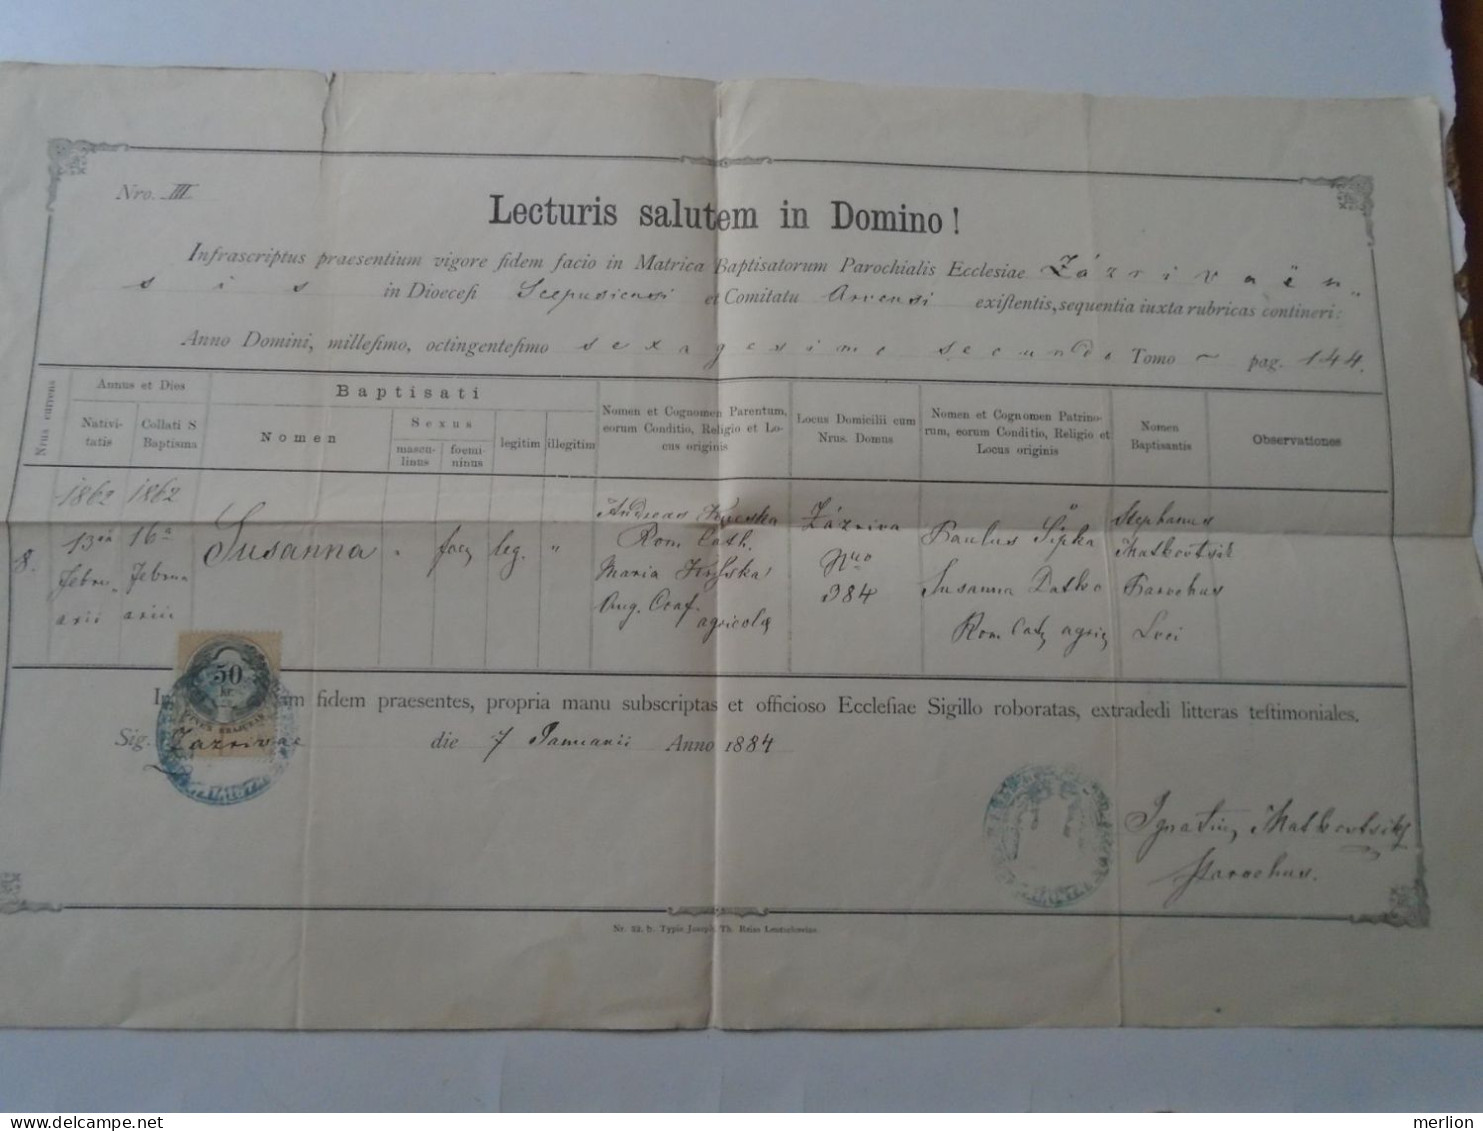 Nro. III
Lecturis salutem in Domino!
Infrascriptus praesentium vigore fidem facio in Matrica Baptisatorum Parochialis Ecclesiae Zázrivaën„
sis in Dioecesi Scepusiensi et Comitatu Arvensi existentis, sequentia iuxta rubricas contineri:
Anno Domini, millesimo, octingentesimo sexagesimo secundo Tomo ~ pag. 144.
Nrus currens
Annus et Dies
Nativi-
tatis
Collati S
Baptisma
Baptisati
Nomen
Sexus
mascu-
linus
foemi-
ninus
legitim
illegitim
Nomen et Cognomen Parentum,
eorum Conditio, Religio et Lo-
cus originis
Locus Domicilii cum
Nrus. Domus
Nomen et Cognomen Patrino-
rum, eorum Conditio, Religio et
Locus originis
Nomen
Baptisantis
Observationes
8.
1862
13a
Febru-
arii
1862
16a
Februa
ariii
Susanna
"
leg.
"
Andreas
Rom. Cath.
Maria
Aug. Conf.
agricolæ
Zázriva
Nro
384
Paulus Šipka
Susanna
Rom. Cath agric
Stephanus
Matkovtsik
Parochus
Loci
In fidem praesentes, propria manu subscriptas et officioso Ecclesiae Sigillo roboratas, extradedi litteras testimoniales.
Sig. Zazrivae die 7 Januarii Anno 1884
50
kr.
Ignatius Matkovtsik
Parochus.
Nr. 32. b. Typis Joseph. Th. Reiss Leutschoviae.
merlion